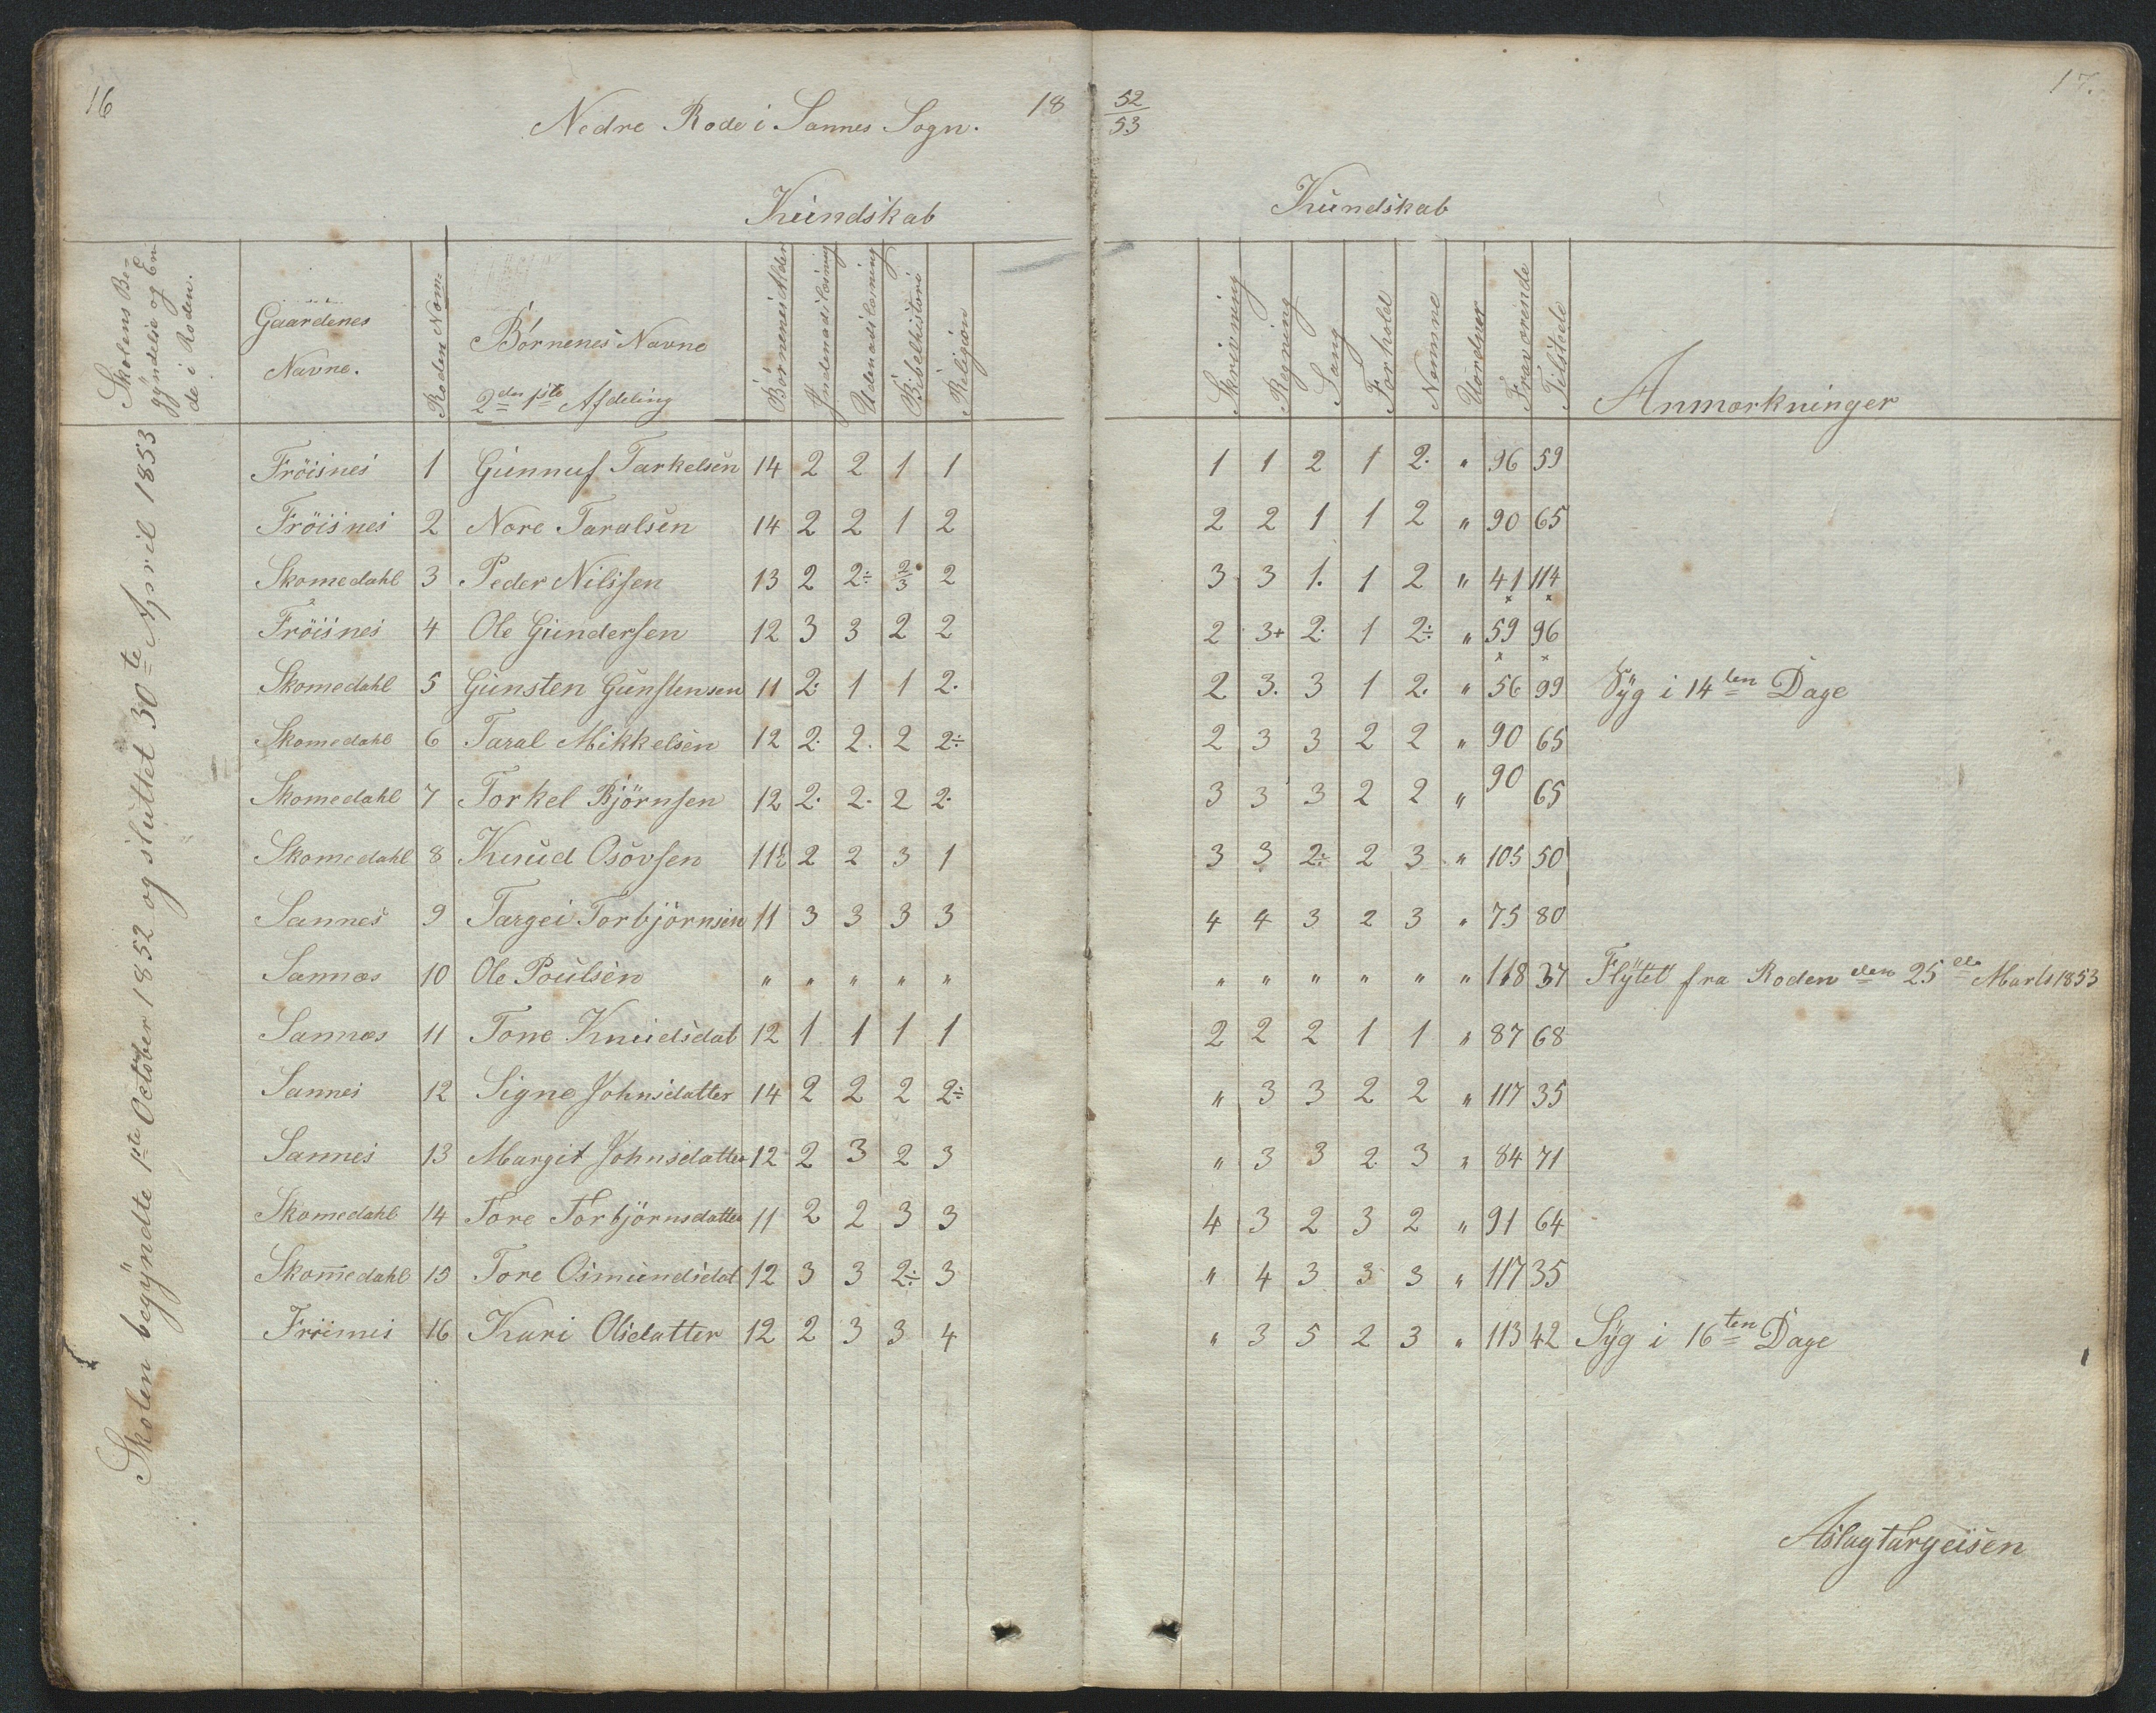 16
Nedre Rode i Sannes Sogn.
18 52/53
17.
Kundskab
Kundskab
Skolens Be-
gyndelse og En-
de i Roden.
Gaardenes
Navne.
Roden Nom:
Börnenes Navne
2den Afdeling
Börnenes Alder
Indenadslæsning
Udenadslæsning
Bibelhistorie
Religion
Skrivning
Regning
Sang
Forhold
Nemme
Uordner
Fraværende
Tilstede
Anmærkninger
Skolen begyndte 1ste October 1852 og sluttet 30te April 1853
Fröisnes 1 Gunnuf Tarkelsen 14 2 2 1 1 1 1 2 1 2. " 96 59
Fröisnes 2 Nore Taralsen 14 2 2 1 2 2 2 1 1 2 " 90 65
Skomedahl 3 Peder Nilssen 13 2 2÷ 2/3 2 3 3 1. 1 2 " 41 114
Fröisnes 4 Ole Gundersen 12 3 3 2 2 2 3+ 2. 1 2÷ " 59 96
Skomedahl 5 Gunsten Gunstensen 11 2. 1 1 2. 2 3. 3 1 2. " 56 99 Syg i 14ten Dage
Skomedahl 6 Taral Mikkelsen 12 2. 2. 2 2÷ 2 3 3 2 2 " 90 65
Skomedahl 7 Torkel Björnsen 12 2. 2. 2 2. 3 3 3 2 2 " 90 65
Skomedahl 8 Knud Osovsen 11½ 2 2 3 1 3 3 2÷ 2 3 " 105 50
Sannes 9 Targei Torbjörnsen 11 3 3 3 3 4 4 3 2 3 " 75 80
Sannes 10 Ole Poulsen " " " " " " " " " " " 118 37 Flytet fra Roden den 25de Marts 1853
Sannes 11 Tone Knudsdat 12 1 1 1 1 2 2 2 1 1 " 87 68
Sannes 12 Signe Johnsdatter 14 2 2 2 2÷ " 3 3 2 2 " 117 35
Sannes 13 Margit Johnsdatter 12 2 3 2 3 " 3 3 2 3 " 84 71
Skomedahl 14 Tore Torbjörnsdatter 11 2 2 3 3 4 3 2 3 2 " 91 64
Skomedahl 15 Tore Osmundsdat 12 3 3 2÷ 3 " 4 3 3 3 " 117 35
Fröisnes 16 Kari Olsdatter 12 2 3 3 4 " 3 5 2 3 " 113 42 Syg i 16ten Dage
Aslagtargeisen